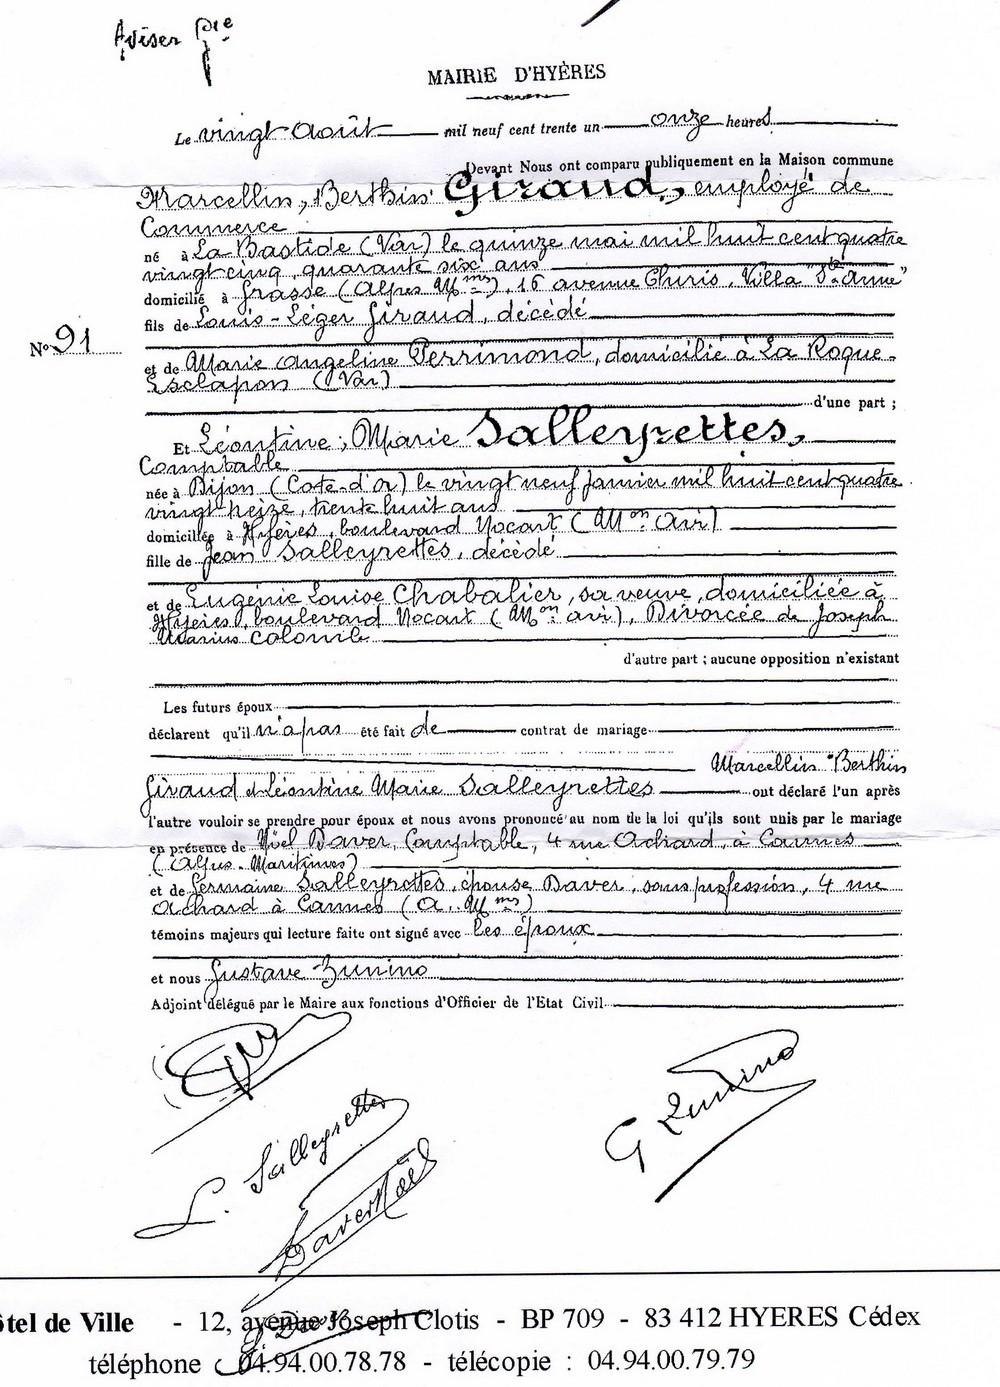 Aviser
MAIRIE D'HYÈRES
Le vingt Août mil neuf cent trente un onze heures
Devant Nous ont comparu publiquement en la Maison commune
Marcellin, Berthin Giraud, employé de
Commerce
né à La Bastide (Var) le quinze mai mil huit cent quatre
vingt cinq, quarante six ans
domicilié à Grasse (Alpes Mmes), 16 avenue Thuris, Villa "Ste Anne"
fils de Louis-Léger Giraud, décédé
No 91
et de Marie Angeline Perrimond, domicilié à La Roque-
Esclapon (Var)
d'une part ;
Et Léontine, Marie Salleyrettes,
Comptable
née à Dijon (Cote-d'or) le vingt neuf Janvier mil huit cent quatre
vingt treize, trente huit ans
domiciliée à Hyères, boulevard Nocart (Mon Avri)
fille de Jean Salleyrettes, décédé
et de Eugénie Louise Chabalier, sa veuve, domiciliée à
Hyères, boulevard Nocart (Mon avri), Divorcée de Joseph
Marius
d'autre part ; aucune opposition n'existant
Les futurs époux
déclarent qu'il n'a pas été fait de contrat de mariage
Marcellin Berthin
Giraud et Léontine Marie Salleyrettes ont déclaré l'un après
l'autre vouloir se prendre pour époux et nous avons prononcé au nom de la loi qu'ils sont unis par le mariage
en présence de Noël Daver, Comptable, 4 rue Achard, à Cannes
(Alpes-Maritimes)
et de Germaine Salleyrettes, épouse Daver, sans profession, 4 rue
Achard à Cannes (A. Mmes)
témoins majeurs qui lecture faite ont signé avec les époux
et nous Gustave Zunino
Adjoint délégué par le Maire aux fonctions d'Officier de l'Etat Civil
G Zunino
L. Salleyrettes
Daver Noël
ôtel de Ville - 12, avenue Joseph Clotis - BP 709 - 83 412 HYERES Cédex
téléphone 04.94.00.78.78 - télécopie : 04.94.00.79.79